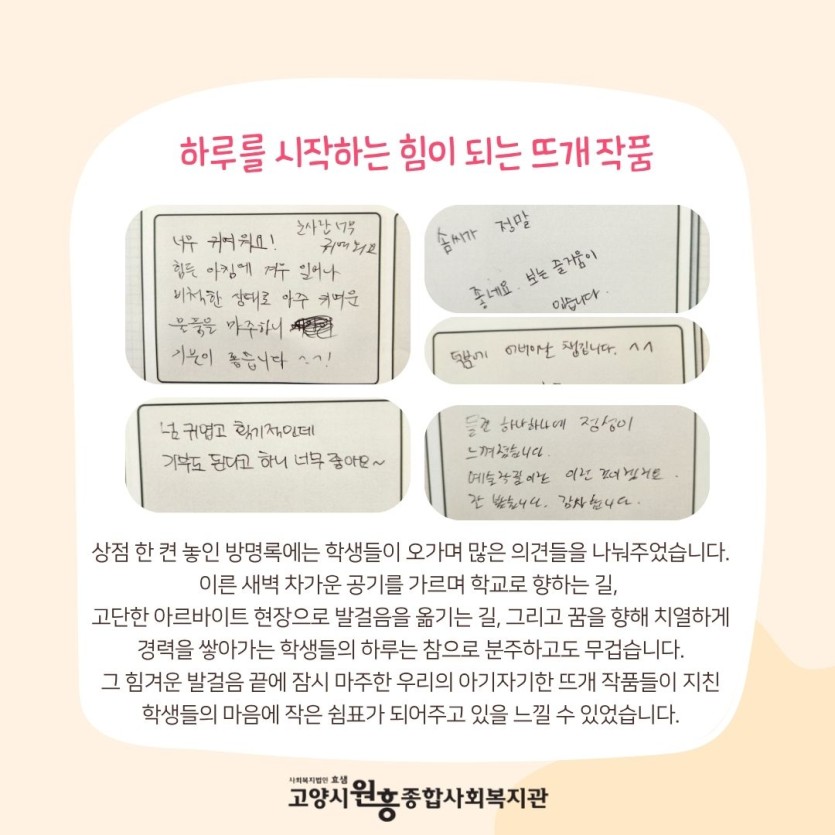 하루를 시작하는 힘이 되는 뜨개 작품
눈사람 너무
귀여워요
너무 귀여워요!
힘든 아침에 겨우 일어나
비척한 상태로 아주 귀여운
문물을 마주하니
기분이 좋습니다 ^^!
솜씨가 정말
좋네요. 보는 즐거움이
있습니다.
덕분에 어버이날 챙깁니다. ^^
넘 귀엽고 획기적인데
기부도 된다고 하니 너무 좋아요~
물건 하나하나에 정성이
느껴졌습니다.
예술작품이란 이런
잘 봤습니다. 감사합니다.
상점 한 켠 놓인 방명록에는 학생들이 오가며 많은 의견들을 나눠주었습니다.
이른 새벽 차가운 공기를 가르며 학교로 향하는 길,
고단한 아르바이트 현장으로 발걸음을 옮기는 길, 그리고 꿈을 향해 치열하게
경력을 쌓아가는 학생들의 하루는 참으로 분주하고도 무겁습니다.
그 힘겨운 발걸음 끝에 잠시 마주한 우리의 아기자기한 뜨개 작품들이 지친
학생들의 마음에 작은 쉼표가 되어주고 있을 느낄 수 있었습니다.
사회복지법인 효샘
고양시원흥종합사회복지관